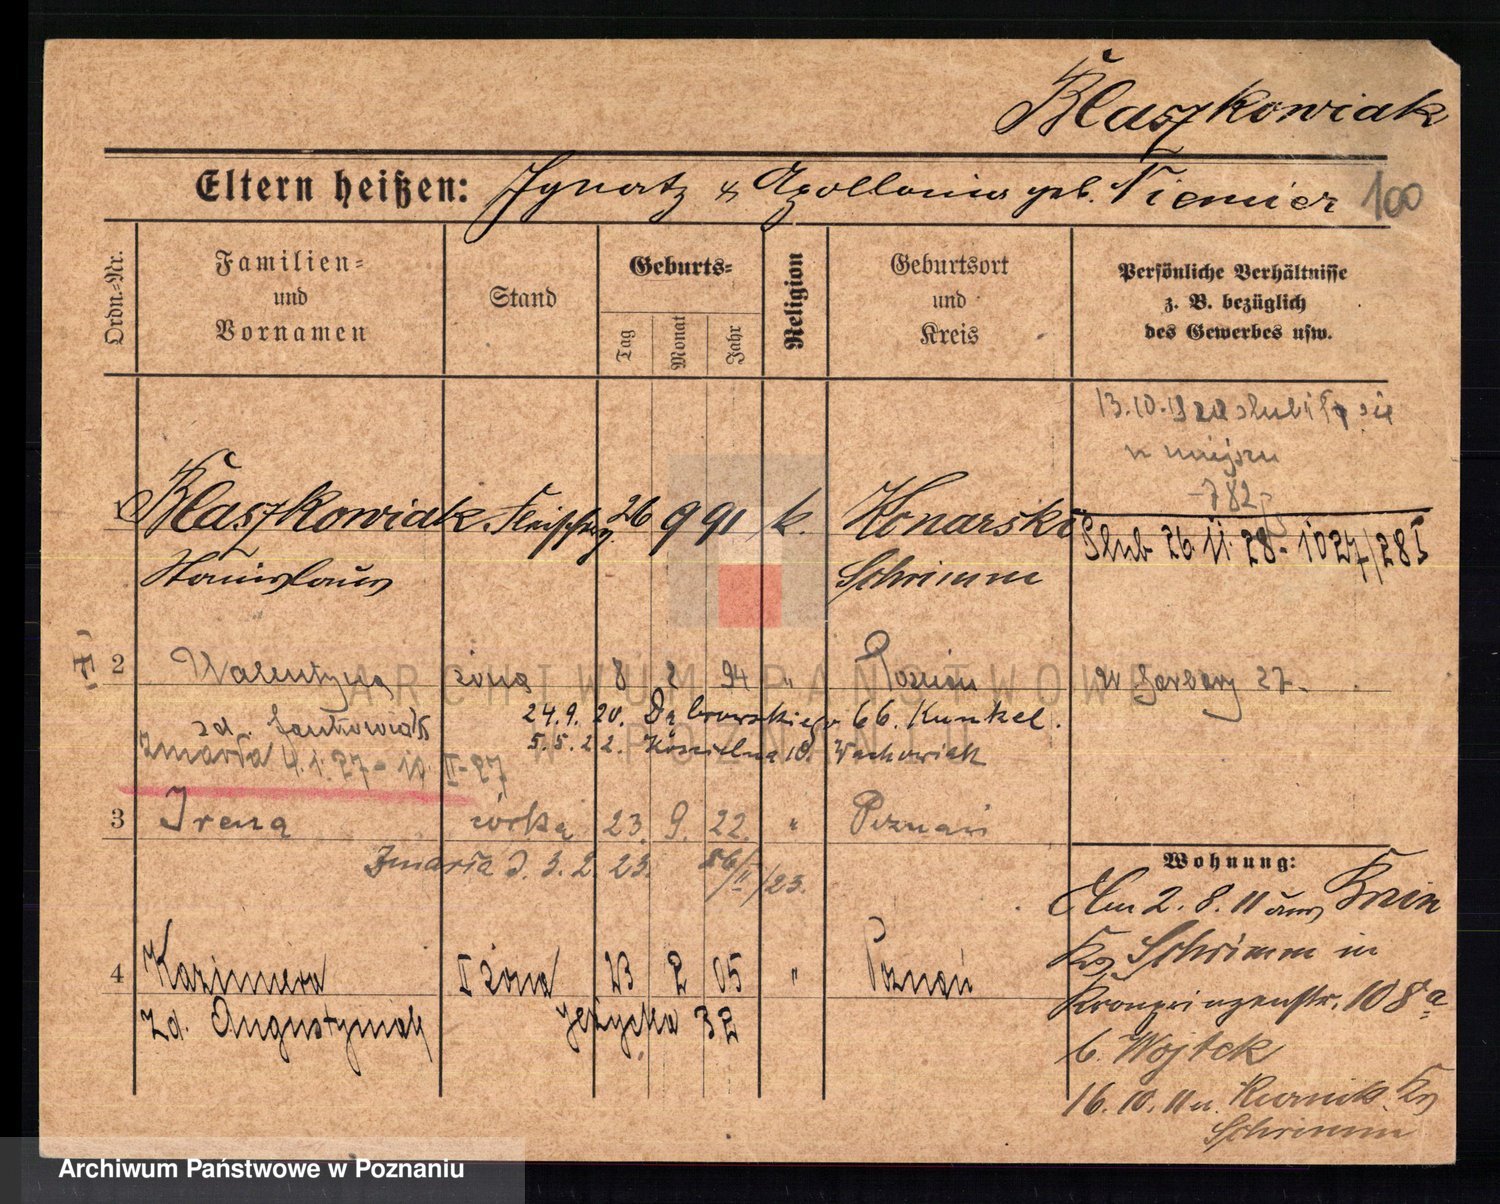 Błaszkowiak
Eltern heißen: Ignatz & Apollonia geb. Niemier 100
Ordn.-Nr.
Familien-
und
Vornamen
Stand
Geburts-
Tag
Monat
Jahr
Religion
Geburtsort
und
Kreis
Persönliche Verhältnisse
z. B. bezüglich
des Gewerbes usw.
13.10.19 zaślubił się
w miejscu
782
1 Błaszkowiak Fleischerg. 26 9 91 k. Konarski
Stanislaus Schrimm
Ślub 26.11.28 - 1027/28 I
2 Walentyna żona 8 2 94 " Poznań W Garbary 27.
zd. 24.9.20. Dąbrowskiego 66. Kunkel.
zmarła 4.1.27 - 10 II-27 5.5.22. 18. Wachowiak
3 Irena córka 23. 9. 22. " Poznań
Zmarła d. 3.2.23. 56/II/23.
4 Kazimiera II żona 23 2 05 " Poznań
zd. Augustyniak Jeżycka 32
Wohnung:
Am 2.8.11 aus Bnin
Krs Schrimm in
Kronprinzenstr. 108a
b. Wojtek
16.10.11 n. Kurnik Krs
Schrimm
ARCHIWUM PAŃSTWOWE
W POZNANIU
Archiwum Państwowe w Poznaniu